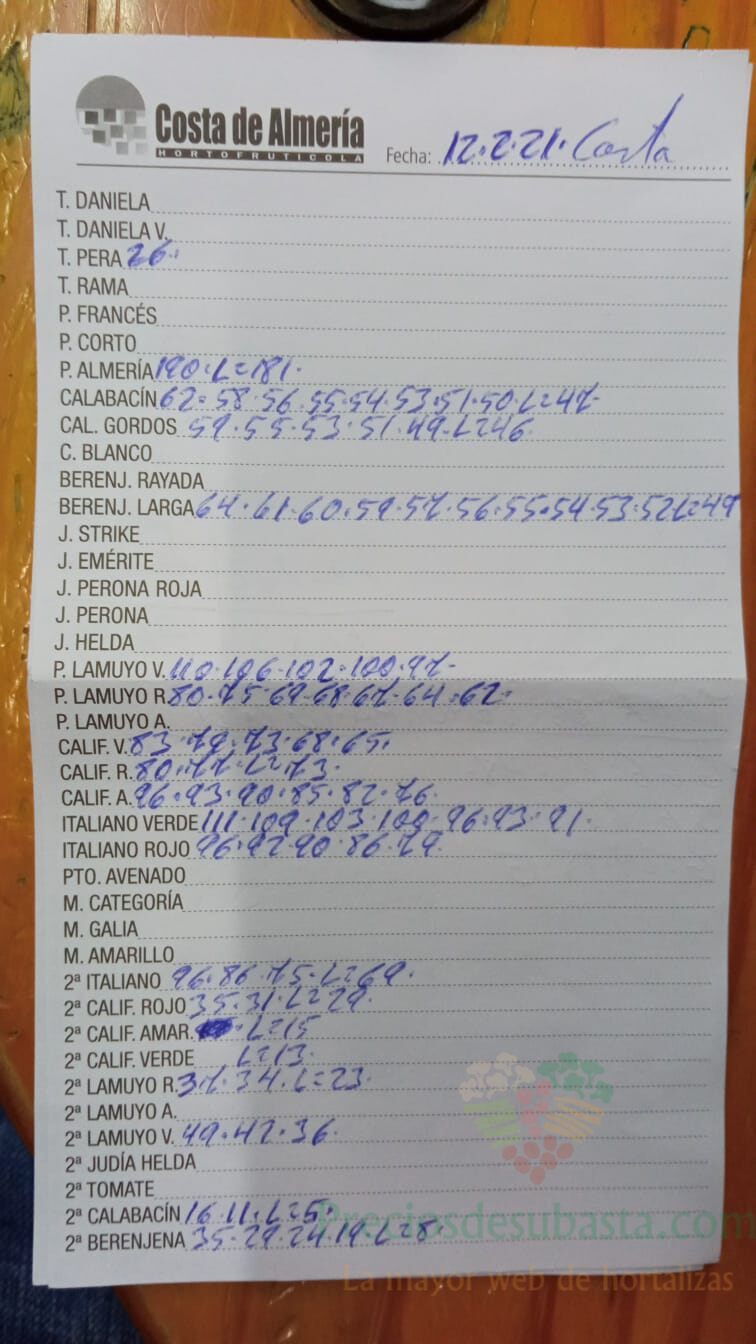 Costa de Almería
HORTOFRUTICOLA
Fecha: 12.2.21. Costa
T. DANIELA
T. DANIELA V.
T. PERA 26.
T. RAMA
P. FRANCÉS
P. CORTO
P. ALMERÍA 190. L=181.
CALABACÍN 62. 58. 56. 55. 54. 53. 51. 50. L=47-
CAL. GORDOS 59. 55. 53. 51. 49. L=46.
C. BLANCO
BERENJ. RAYADA
BERENJ. LARGA 64. 61. 60. 59. 57. 56. 55. 54. 53. 52 L=49
J. STRIKE
J. EMÉRITE
J. PERONA ROJA
J. PERONA
J. HELDA
P. LAMUYO V. 110. 106. 102. 100. 97-
P. LAMUYO R. 80. 75. 69. 68. 67. 64. 62.
P. LAMUYO A.
CALIF. V. 83. 79. 73. 68. 65.
CALIF. R. 80. 77. L=73.
CALIF. A. 96. 93. 90. 85. 82. 76.
ITALIANO VERDE 111. 109. 103. 100. 96. 93. 91.
ITALIANO ROJO 96. 92. 90. 86. 79.
PTO. AVENADO
M. CATEGORÍA
M. GALIA
M. AMARILLO
2ª ITALIANO 96. 86. 75. L=69.
2ª CALIF. ROJO 35. 31. L=29.
2ª CALIF. AMAR. L=15
2ª CALIF. VERDE L=13.
2ª LAMUYO R. 37. 34. L=23.
2ª LAMUYO A.
2ª LAMUYO V. 49. 42. 36.
2ª JUDÍA HELDA
2ª TOMATE
2ª CALABACÍN 16. 11. L=5.
2ª BERENJENA 35. 29. 24. 19. L=8.
Preciosdesubasta.com
La mayor web de hortalizas